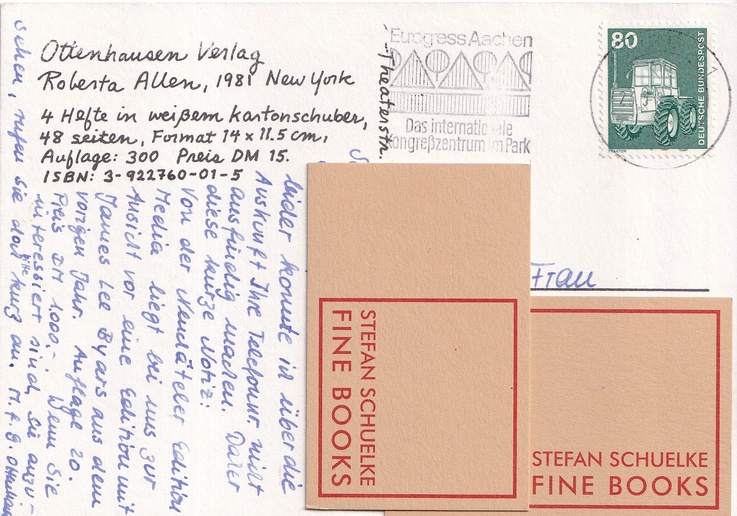 Ottenhausen Verlag
Roberta Allen, 1981 New York
4 Hefte in weißem Kartonschuber,
48 Seiten, Format 14 x 11.5 cm,
Auflage: 300 Preis DM 15.
ISBN: 3-922760-01-5
Eurogress Aachen
Das internationale
Kongreßzentrum im Park
Theaterstr.
80
DEUTSCHE BUNDESPOST
Frau
leider konnte ich über die
Auskunft Ihre Telefonnr. nicht
ausfindig machen. Daher
diese kurze Notiz:
Von der Neudâteler Edition
Media liegt bei uns zur
Ansicht vor eine Edition mit
James Lee Byars aus dem
vorigen Jahr. Auflage 20.
Preis DM 1000.- Wenn Sie
interessiert sind, sie anzu-
sehen, rufen Sie bitte doch kurz an. M.f.G.
STEFAN SCHUELKE
FINE BOOKS
STEFAN SCHUELKE
FINE BOOKS